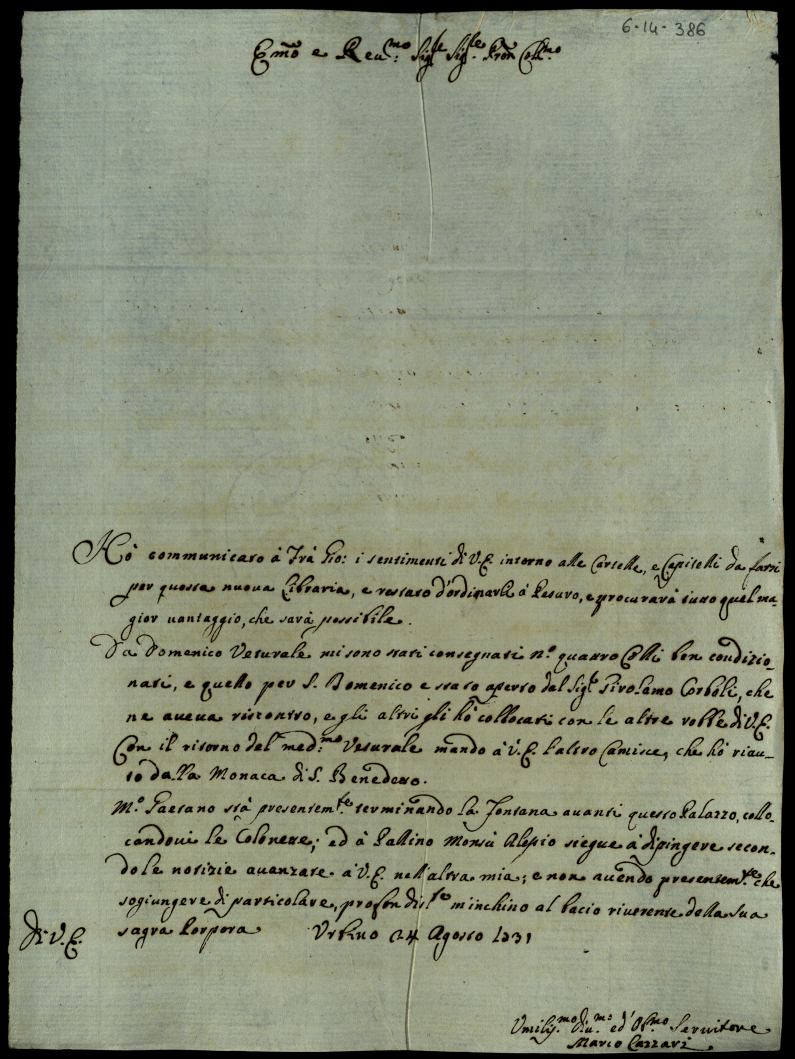 6-14-386
Em̃o e Reu.mo Sig.re Sig.re Pron̄ Coll.mo
Hò communicato à Frà Gio: i sentimenti di V.E. intorno alle Cartelle, e Capitelli da farsi
per questa nuova Libraria, e restato d'ordinarli à Pesaro, e procurarà tutto quel ma-
gior vantaggio, che sarà possibile.
Da Domenico Veturale mi sono stati consegnati n.o quattro Colli ben condizio-
nati, e quello per S. Domenico e stato aperto dal Sig.r Girolamo Corboli, che
ne aveva riscontro, e gli altri gli hò collocati con le altre robbe di V.E.
Con il ritorno del med.mo Veturale mando à V.E. l'altro Camisce, che hò riau-
to dalla Monaca di S. Benedetto.
M.o Gaetano stà presentem.te terminando la Fontana auanti questo Palazzo, collo-
candoui le Colonette; ed à Pallino Monsù Alessio siegue à dipingere secon-
do le notizie auanzate à V.E. nell'altra mia; e non auendo presentem.te che
sogiungere di particolare, profondis.te m'inchino al bacio riuerente della Sua
sagra Porpora Urbino 24 Agosto 1731
Di V.E.
Umiliss.mo Diu.mo ed' Ob.mo Seruitore
Marco Lazzari